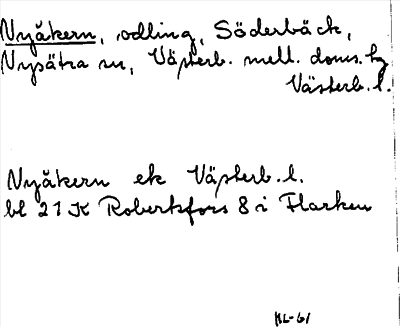 Nyåkern, odling, Söderbäck,
Nysätra sn, Västerb. mell. doms.
Västerb. l.
Nyåkern ek Västerb. l.
bl 21 K Robertsfors 8 i Flarken
BL-61